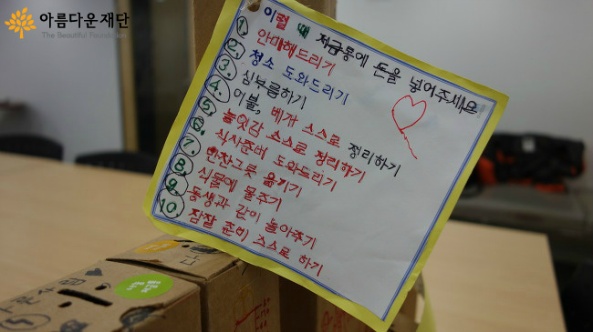 아름다운재단
The Beautiful Foundation
이럴 때 저금통에 돈을 넣어주세요
1. 안마해드리기
2. 청소 도와드리기
3. 심부름하기
4. 이불, 베개 스스로 정리하기
5. 놀잇감 스스로 정리하기
6. 식사준비 도와드리기
7. 빈찬그릇 옮기기
8. 식물에 물주기
9. 동생과 같이 놀아주기
10. 잠잘 준비 스스로 하기